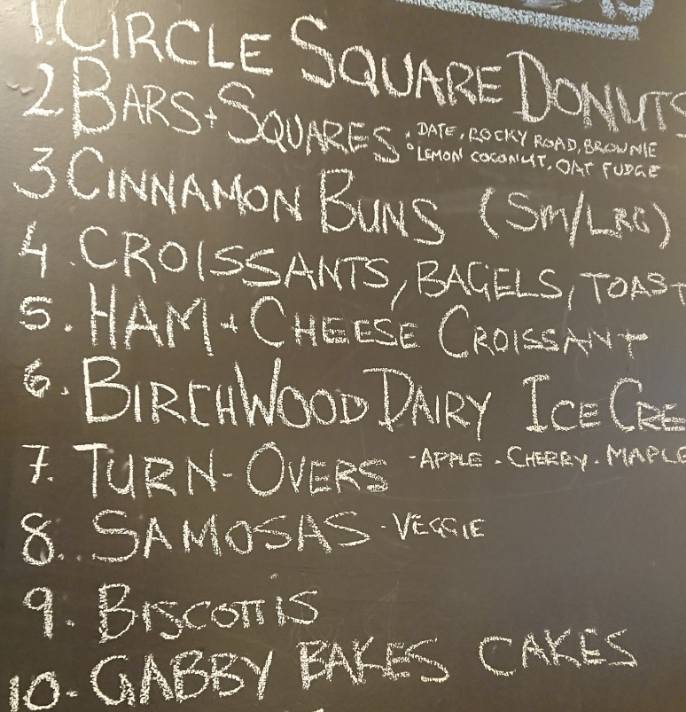 1. CIRCLE SQUARE DONUTS
2. BARS + SQUARES: DATE, ROCKY ROAD, BROWNIE
LEMON COCONUT, OAT FUDGE
3 CINNAMON BUNS (SM/LRG)
4. CROISSANTS, BAGELS, TOAST
5. HAM + CHEESE CROISSANT
6. BIRCHWOOD DAIRY ICE CRE
7. TURN-OVERS - APPLE - CHERRY - MAPLE
8. SAMOSAS - VEGGIE
9. BISCOTTIS
10- GABBY BAKES CAKES